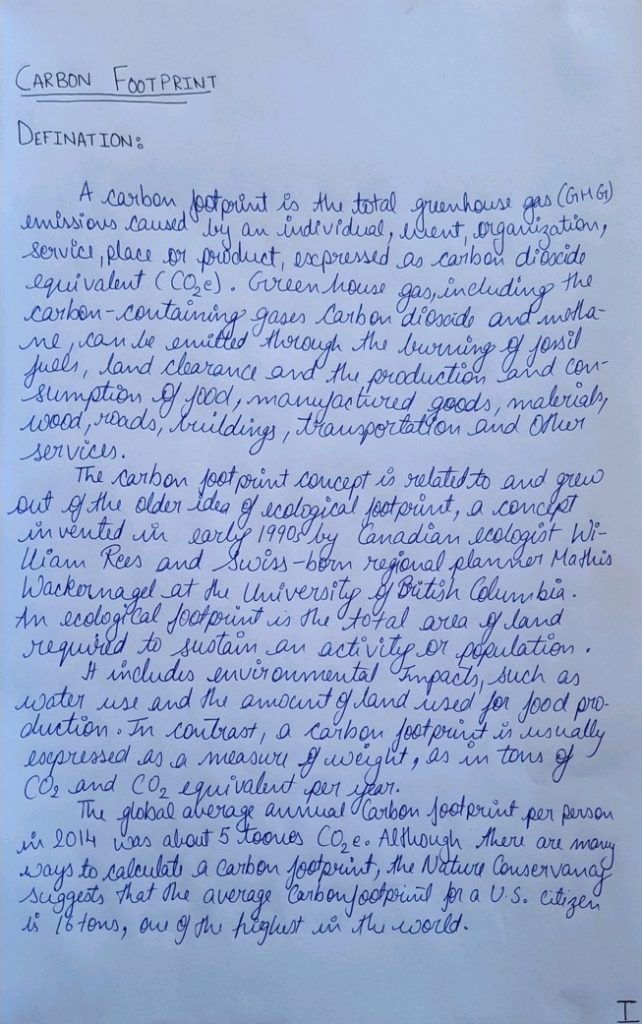 CARBON FOOTPRINT
DEFINATION:
A carbon footprint is the total greenhouse gas (GHG)
emissions caused by an individual, event, organization,
service, place or product, expressed as carbon dioxide
equivalent (CO₂e). Greenhouse gas, including the
carbon-containing gases carbon dioxide and metha-
ne, can be emitted through the burning of fossil
fuels, land clearance and the production and con-
sumption of food, manufactured goods, materials,
wood, roads, buildings, transportation and other
services.
The carbon footprint concept is related to and grew
out of the older idea of ecological footprint, a concept
invented in early 1990s by Canadian ecologist Wi-
lliam Rees and Swiss-born regional planner Mathis
Wackernagel at the University of British Columbia.
An ecological footprint is the total area of land
required to sustain an activity or population.
It includes environmental Impacts, such as
water use and the amount of land used for food pro-
duction. In contrast, a carbon footprint is usually
expressed as a measure of weight, as in tons of
CO₂ and CO₂ equivalent per year.
The global average annual Carbon footprint per person
in 2014 was about 5 toones CO₂e. Although there are many
ways to calculate a carbon footprint, the Nature Conservancy
suggests that the average Carbon footprint for a U.S. citizen
is 16 tons, one of the highest in the world.
I